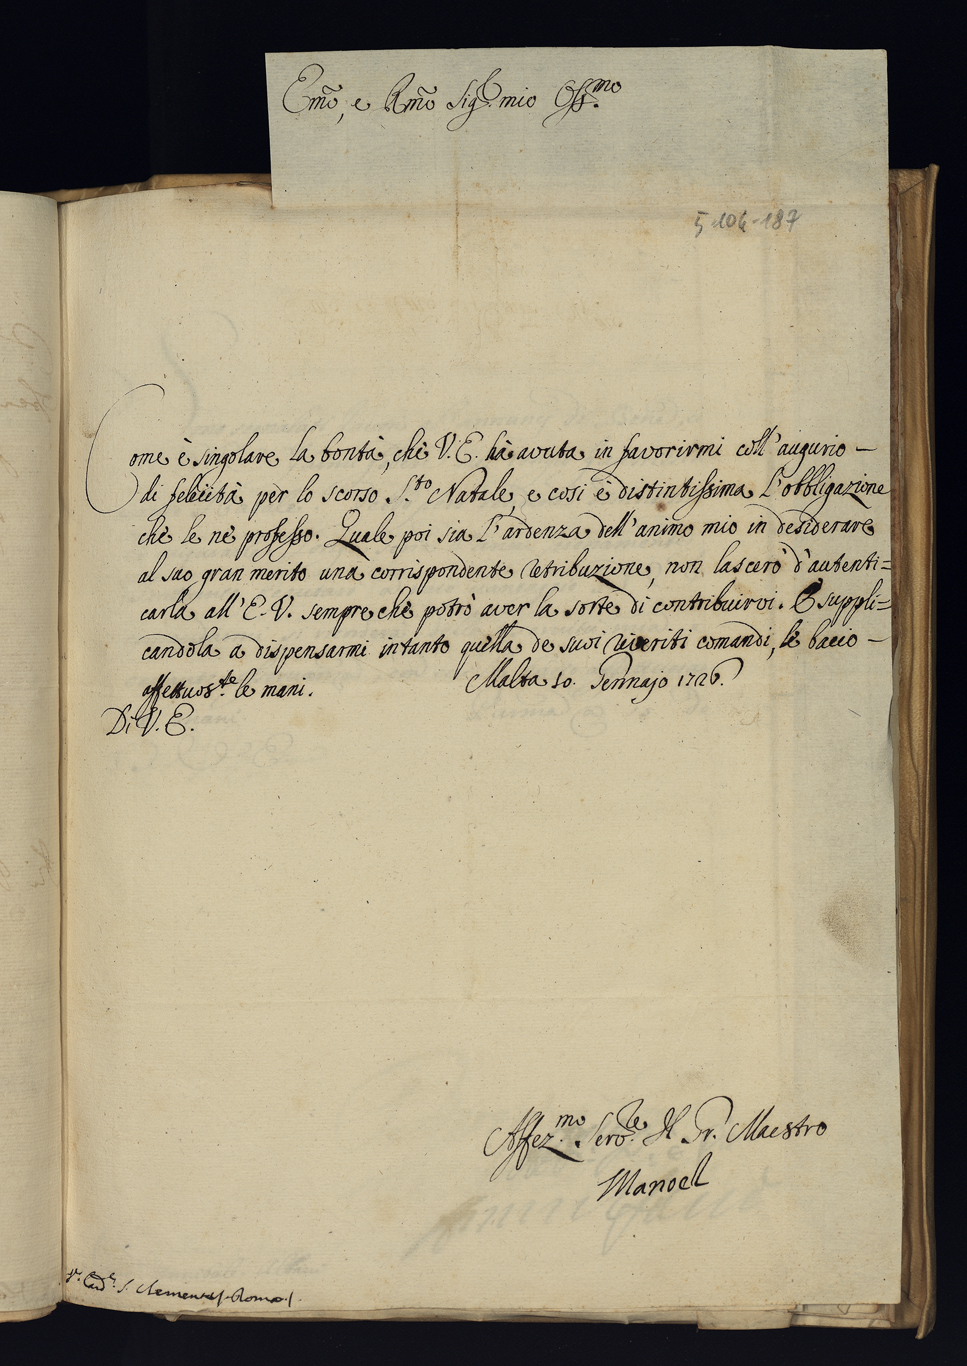 Emo, e Rmo Sigr. mio Ossmo
5 106-187
Come è singolare la bontà, chè V. E. hà avuta in favorirmi coll' augurio –
di felicità per lo scorso S.to Natale, e cosi è distintissima l'obbligazione
chè le nè professo. Quale poi sia l'ardenza dell' animo mio in desiderare
al suo gran merito una corrispondente retribuzione, non lascerò d'autenti=
carla all' E. V. sempre chè potrò aver la sorte di contribuirvi. E suppli=
candola a dispensarmi intanto quella de suoi riveriti comandi, le bacio –
affettuos.te le mani. Malta 10. Gennajo 1726.
Di V. E.
Affez.mo Serv.re Il Gr. Maestro
Manoel
Card.e S. Clemente /. Roma ./.